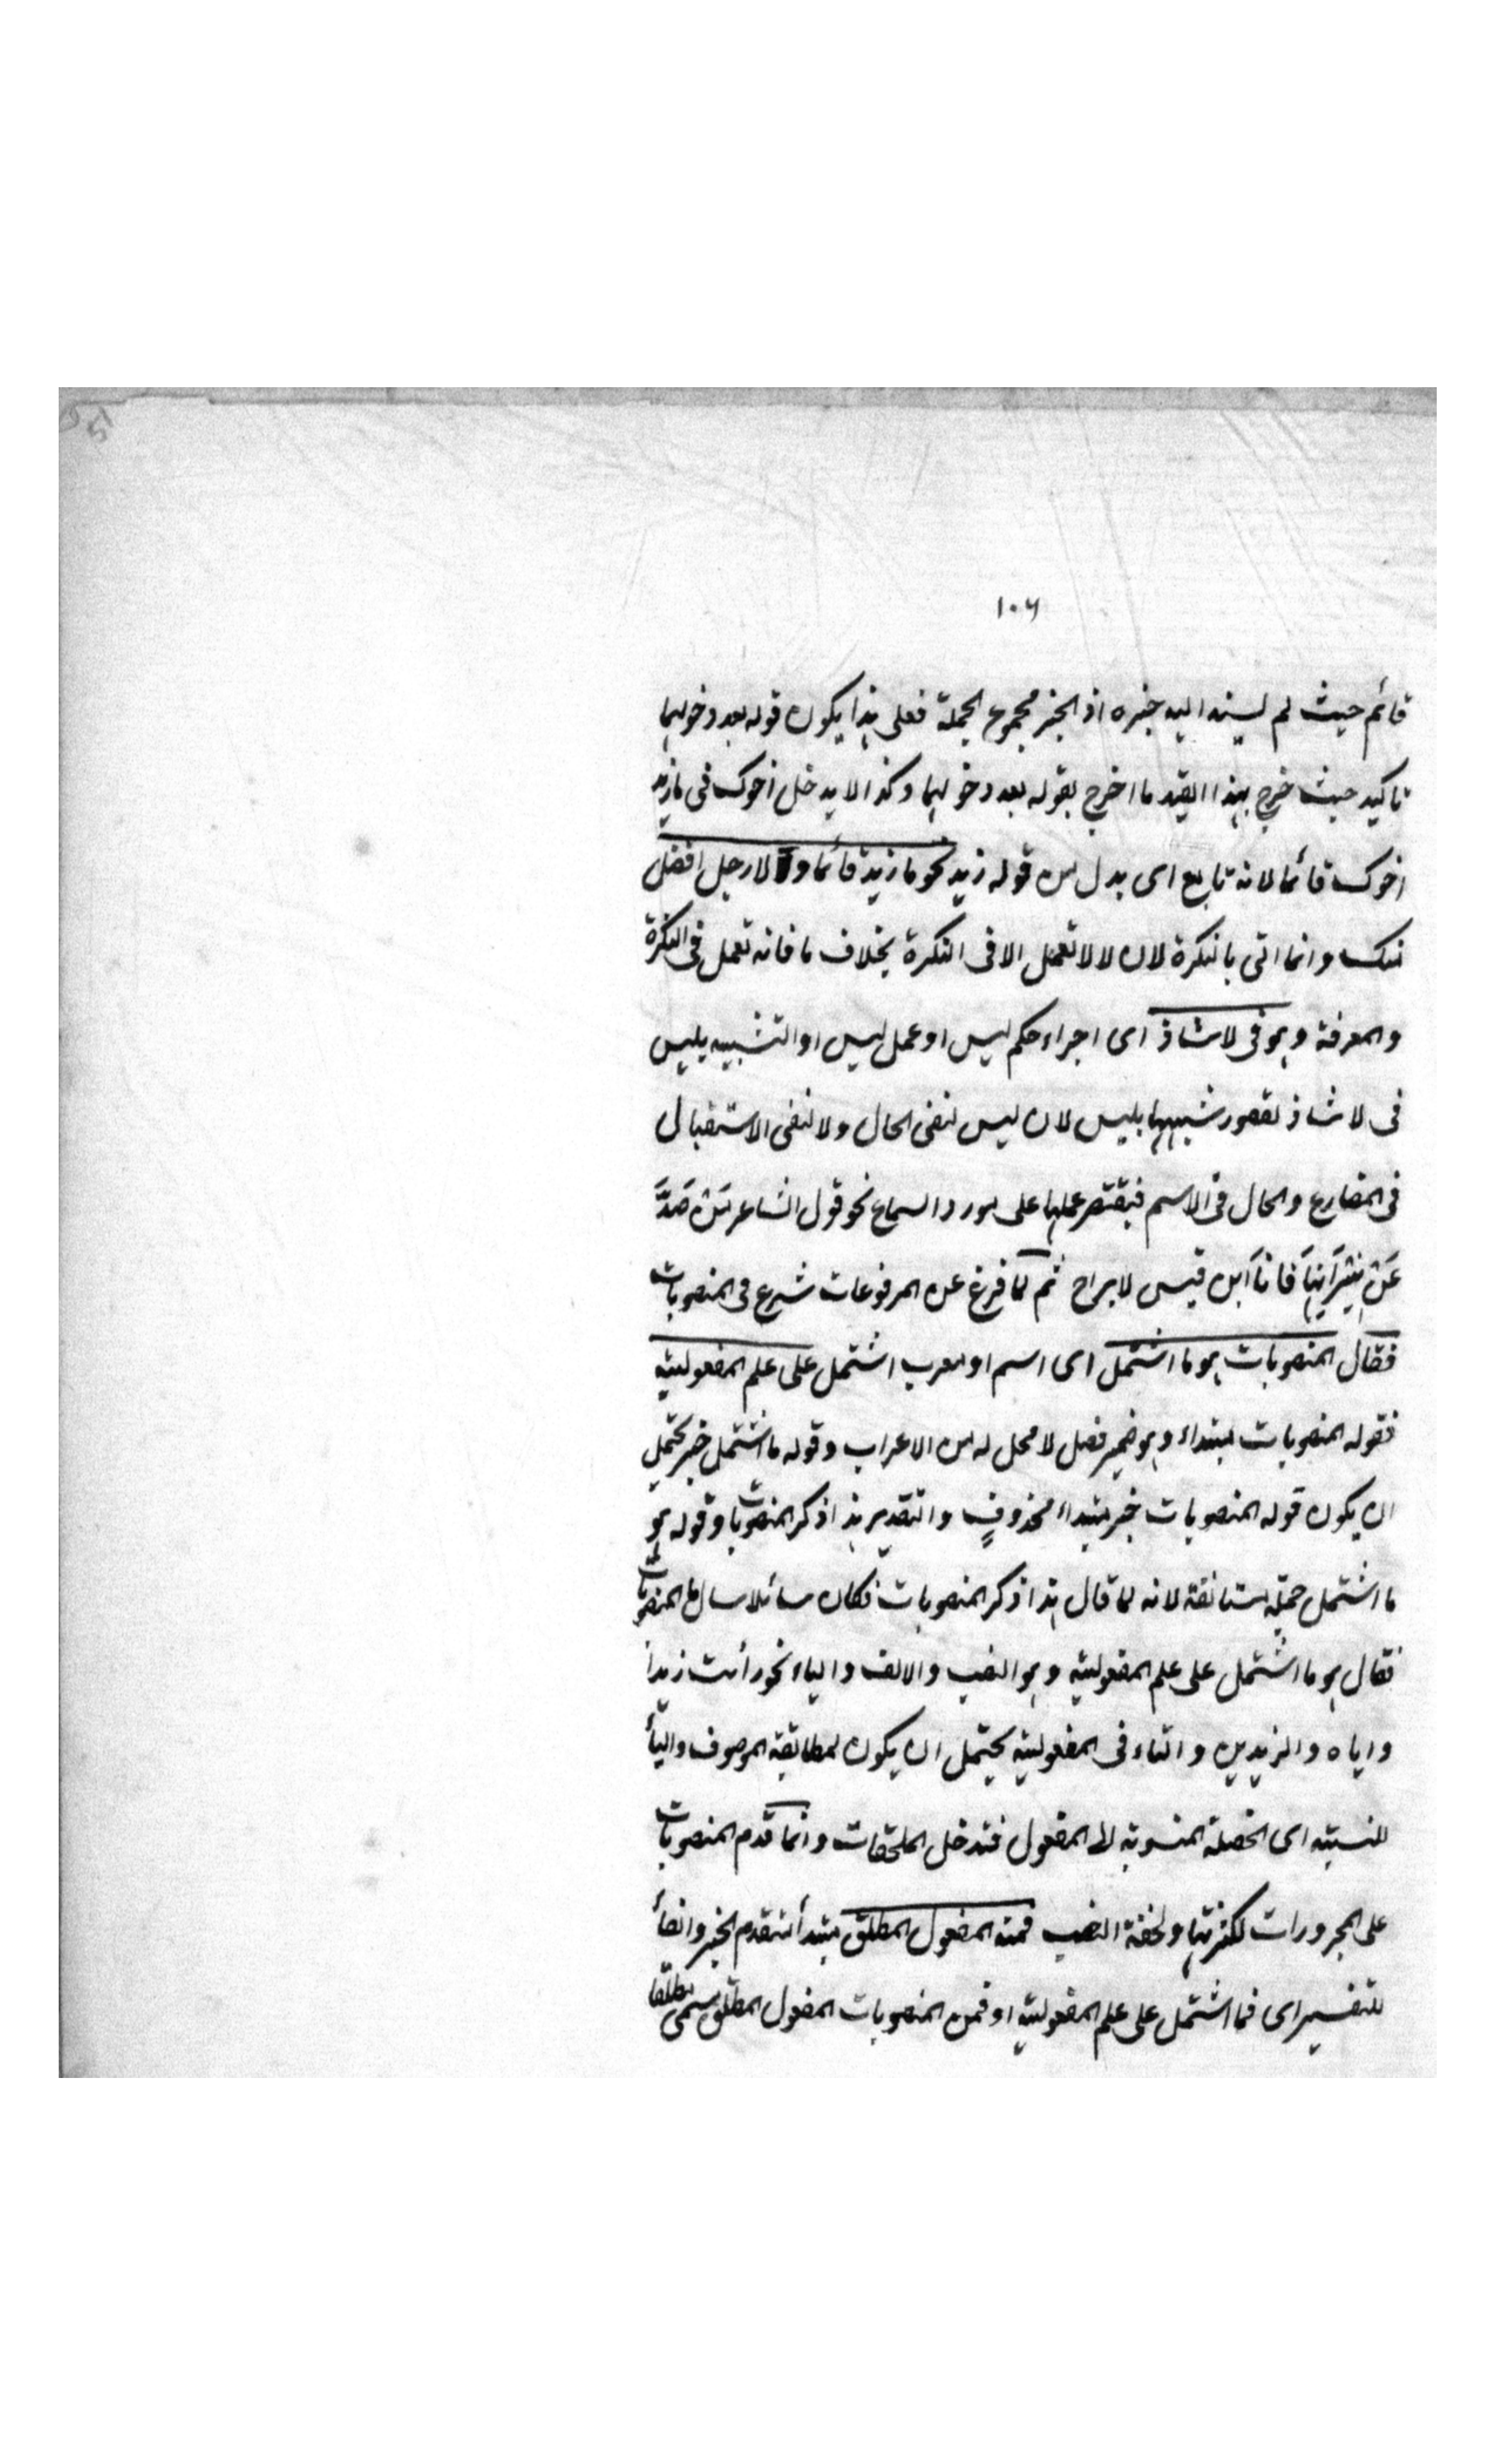 ١٠٦
قائم حيث لم يسند اليه خبره اذ الخبر مجموع الجملة فعلى هذا يكون قوله بعد دخولهما
تاكيد حيث خرج بهذا القيد ما اخرج بقوله بعد دخولهما وكذا لا يدخل اخوك فى ما زيد
اخوك قائما لانه تابع اى بدل من قوله زيد نحو ما زيد قائما و لا رجل افضل
منك وانما اتى بالنكرة لان لا لا تعمل الا فى النكرة بخلاف ما فانه تعمل فى النكرة
والمعرفة وهو فى لا شاذ اى اجراء حكم ليس او عمل ليس او التشبيه بليس
فى لا شاذ لقصور شبهها بليس لان ليس لنفى الحال ولا لنفى الاستقبال
فى المضارع والحال فى الاسم فيقتصر عملها على مورد السماع نحو قول الشاعر مَنْ صَدَّ
عَنْ نِيْرَانِهَا فَانَا ابن قيس لا براح ثم لما فرغ عن المرفوعات شرع فى المنصوبات
فقال المنصوبات هو ما اشتمل اى اسم او معرب اشتمل على علم المفعولية
فقوله المنصوبات مبتداء وهو ضمير فصل لا محل له من الاعراب وقوله ما اشتمل خبر يحتمل
ان يكون قوله المنصوبات خبر مبتداء محذوفٍ والتقدير هذا ذكر المنصوبات وقوله هو
ما اشتمل جملة مستانفة لانه لما قال هذا ذكر المنصوبات فكان سائلا سال ما المنصوبات
فقال هو ما اشتمل على علم المفعولية وهو النصب والالف والياء نحو رأيت زيدا
واياه والزيدين والتاء فى المفعولية يحتمل ان يكون لمطابقة الموصوف والياء
للنسبة اى الخصلة المنسوبة الى المفعول فتدخل الملحقات وانما قدم المنصوبات
على المجرورات لكثرتها ولخفة النصب فمنه المفعول المطلق مبتدأ لتقدم الخبر والفاء
للتفسير اى فما اشتمل على علم المفعولية او فمن المنصوبات المفعول المطلق سمى مطلقا